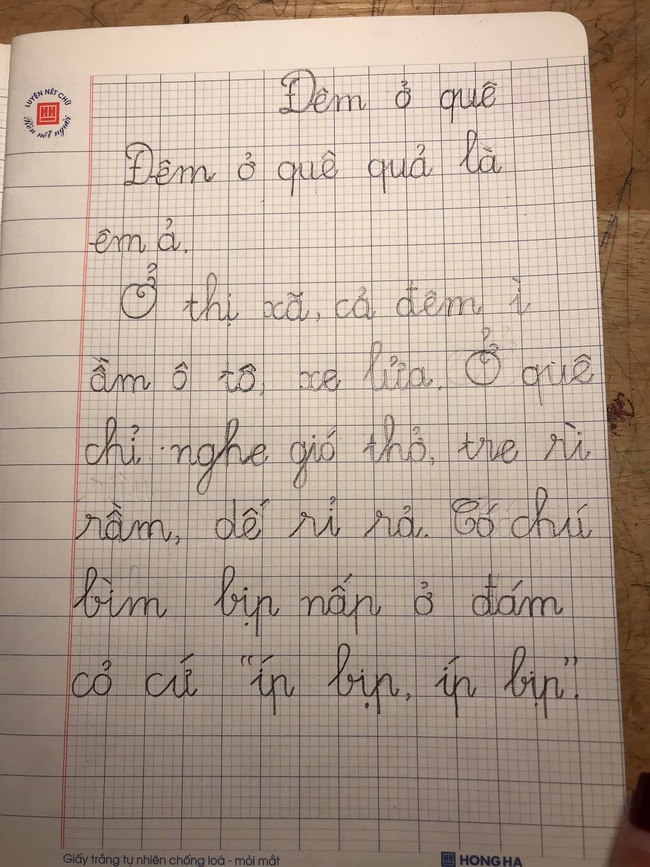 LUYỆN NÉT CHỮ
HH
Rèn nết người
Đêm ở quê
Đêm ở quê quả là
êm ả.
Ở thị xã, cả đêm ì
ầm ô tô, xe lửa. Ở quê
chỉ nghe gió thở, tre rì
rầm, dế rỉ rả. Có chú
bìm bịp nấp ở đám
cỏ cứ "íp bịp, íp bịp".
Giấy trắng tự nhiên chống loá - mỏi mắt
HH HONG HA